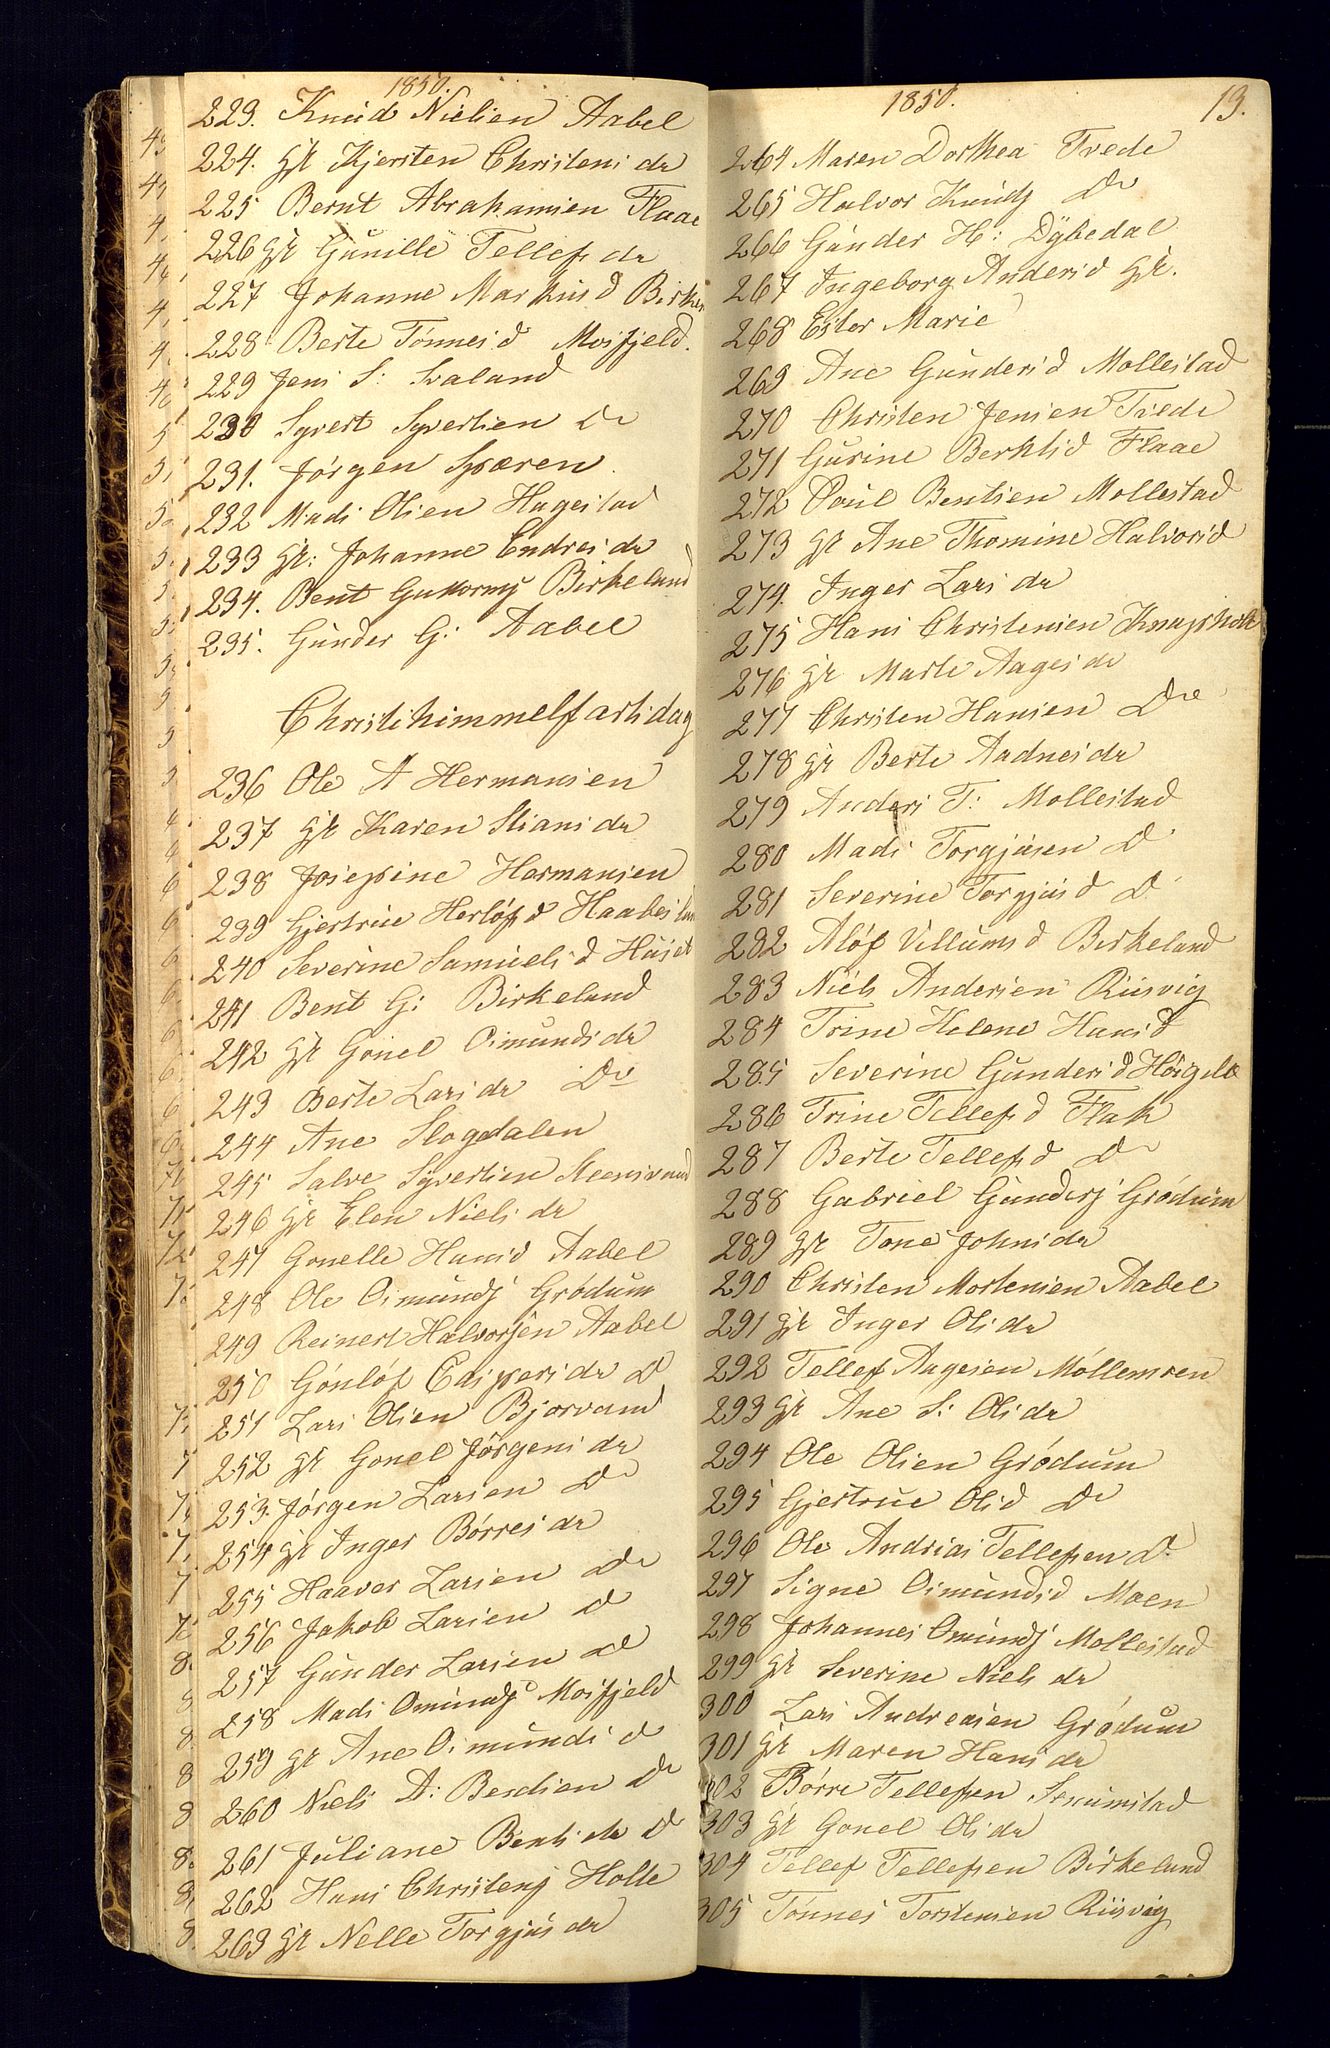 1850.
223. Knud Nielsen Aabel
224. gk Kjersten Christens dr
225 Bernt Abrahamsen Flaae
226 gk Gunille Tellefs dr
227 Johanne Markus d
228 Berte Tönnes d Mosfjeld.
229 Jens S: Svaland
230 Syvert Syvertsen Do
231. Jörgen Spæren.
232 Mads Olsen Hagestad
233 gk: Johanne Endres dr
234. Bent Guttormsj Birkeland
235. Gunder G: Aabel
Christihimmelfartsdag
236 Ole A Hermansen
237 gk Karen Stians dr
238 Josepine Hermansen
239 Gjertrue Herlöfs d
240 Severine Samuels d
241 Bent G: Birkeland
242 gk Gonel Osmunds dr
243 Berte Lars dr Do
244 Ane Slogdalen
245 Salve Syvertsen
246 gk Elen Niels dr
247 Gonelle Hansd Aabel
248 Ole Osmundsj Grödum
249 Reinert Halvorsen Aabel
250 Gönlöf Caspers dr Do
251 Lars Olsen Bjorvand
252 gk Gonel Jörgens dr
253. Jörgen Larsen Do
254 gk Inger Börres dr
255 Haaver Larsen Do
256 Jakob Larsen Do
257 Gunder Larsen Do
258 Mads Omundsj Mosfjeld
259 gk Ane Osmunds d
260 Niels A: Bentsen Do
261 Juliane Bents dr Do
262 Hans Christensj Holte
263 gk Nelle Torgjus dr
1850.
13.
264 Maren Dorthea Tvede
265 Halvor Knudsj Do
266 Gunder H: Dybedal
267 Ingeborg Anders d gk.
268 Ester Marie
269 Ane Gunders d Mollestad
270 Christen Jensen Tvede
271 Gurine Berthls d Flaae
272 Poul Bentsen Mollestad
273 gk Ane Thomine Halvorsd
274. Inger Lars dr
275 Hans Christensen
276 gk Marte Aages dr
277 Christen Hansen Do
278 gk Berte Aadnes dr
279 Anders T: Mollestad
280 Mads Torgjusen Do
281 Severine Torgjus d Do
282 Alöf Villums d Birkeland
283 Niels Andersen Riisvig
284 Trine Helene Hans d
285 Severine Gunders d
286 Trine Tellefs d Flak
287 Berte Tellefs d Do
288 Gabriel Gundersj Grödum
289 gk Tone Johns dr
290 Christen Mortensen Aabel
291 gk Inger Ols dr
292 Tellef Aagesen Möllemyren
293 gk Ane S: Ols dr
294 Ole Olsen Grödum
295 Gjertrue Ols d Do
296 Ole Andrias Tellefsen Do
297 Signe Osmunds d Moen
298 Johannes Omundsj Mollestad
299 gk Severine Niels dr
300 Lars Andreasen Grödum
301 gk Maren Hans dr
302 Börre Tellefsen
303 gk Gonel Ols dr
304 Tellef Tellefsen Birkeland
305 Tönnes Torstensen Riisvig